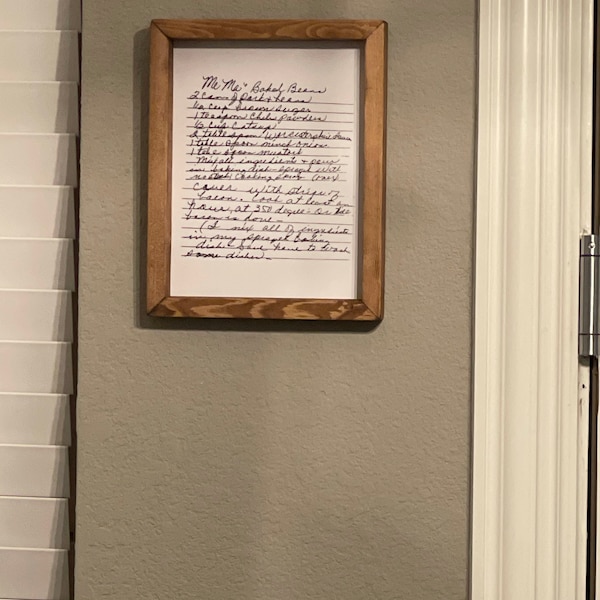 Me Ma's Baked Beans
2 Cans Pork & beans
1/2 cup brown Sugar
1 teaspoon Chili Powders
1/2 cup Catsup
2 table spoon Worcestershire Sauce
1 table spoon mince onion
1 table spoon mustard
Mix all ingredients & pour
in baking dish - sprayed with
nonstick Cooking Spray (Pam)
Cover with strips of
bacon. Cook at least an
hour at 350 degree - or till
bacon is done -
(I mix all of ingredients
in my sprayed baking
dish - save have to wash
some dishes -